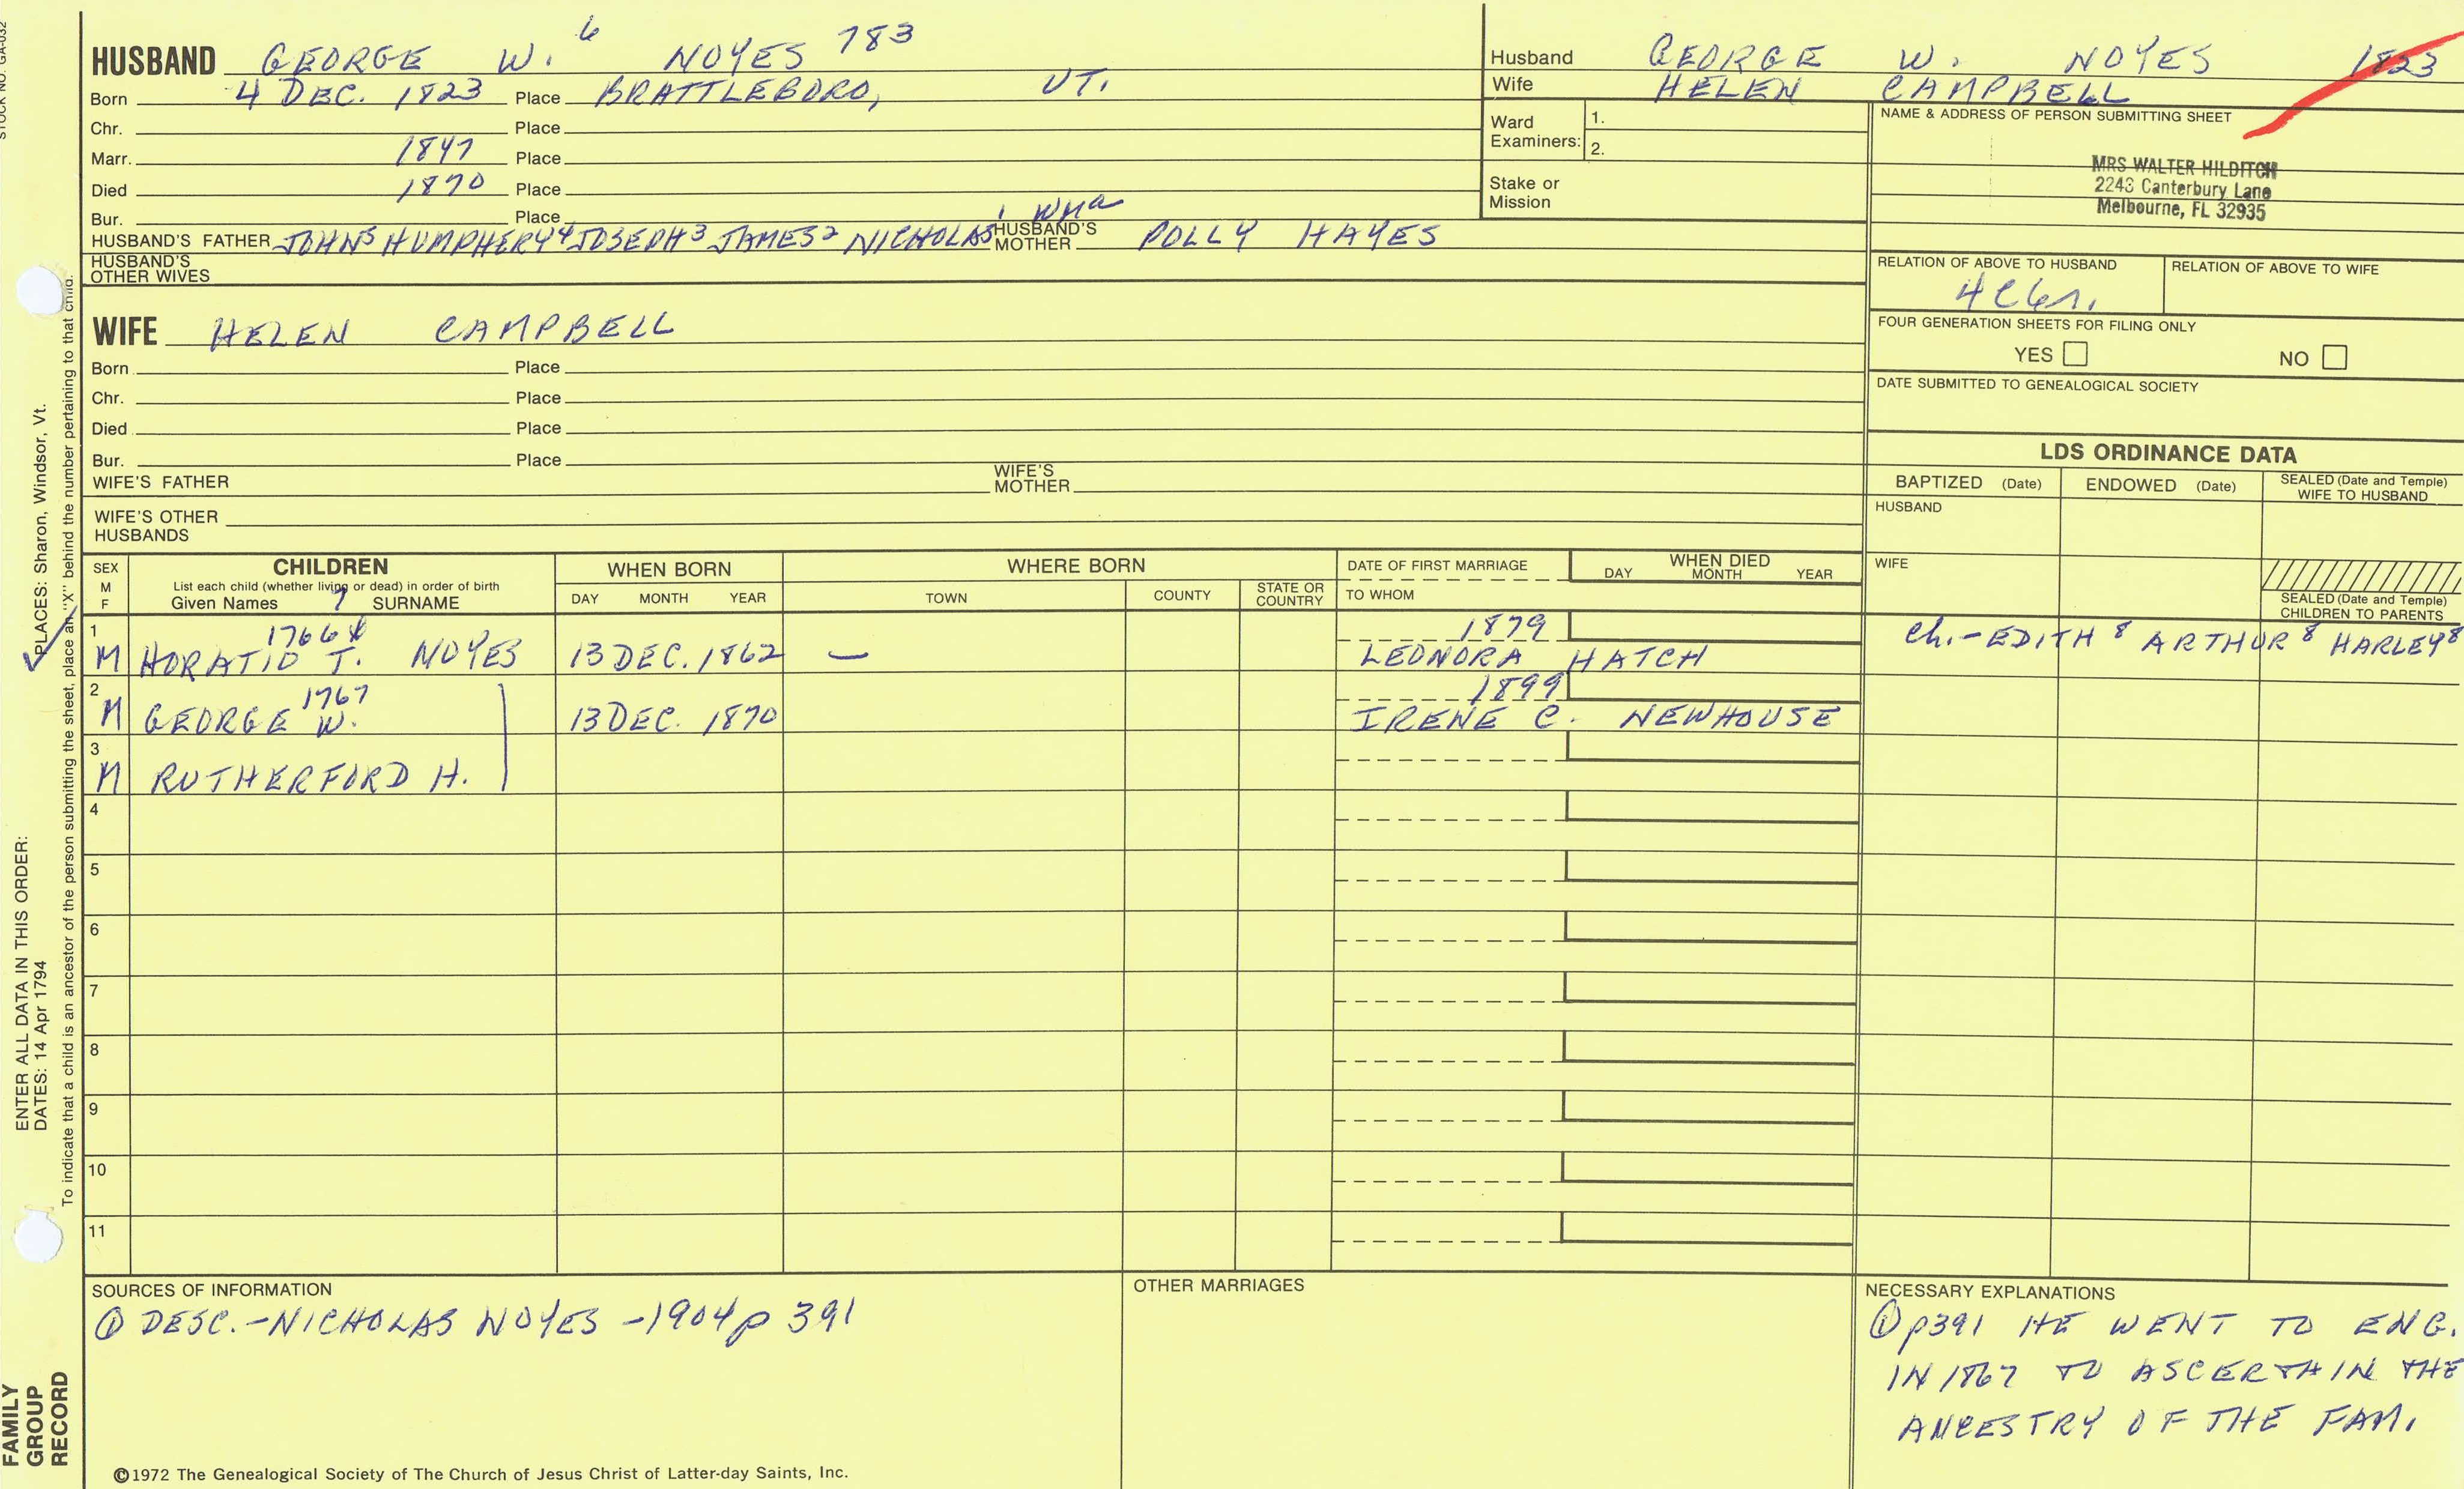 STOCK NO. GA-032
HUSBAND GEORGE W. 6 NOYES 783
Born 4 DEC. 1823 Place BRATTLEBORO, VT.
Chr. Place
Marr. 1847 Place
Died 1870 Place
Bur. Place
HUSBAND'S FATHER JOHN5 HUMPHERY4 JOSEPH3 JAMES2 NICHOLAS1 Wm a HUSBAND'S MOTHER POLLY HAYES
HUSBAND'S OTHER WIVES
Husband GEORGE W. NOYES 1823
Wife HELEN CAMPBELL
Ward Examiners: 1.
2.
Stake or Mission
NAME & ADDRESS OF PERSON SUBMITTING SHEET
MRS WALTER HILDITCH
2243 Canterbury Lane
Melbourne, FL 32935
RELATION OF ABOVE TO HUSBAND
RELATION OF ABOVE TO WIFE
FOUR GENERATION SHEETS FOR FILING ONLY
YES NO
DATE SUBMITTED TO GENEALOGICAL SOCIETY
WIFE HELEN CAMPBELL
Born Place
Chr. Place
Died Place
Bur. Place
WIFE'S FATHER WIFE'S MOTHER
WIFE'S OTHER HUSBANDS
LDS ORDINANCE DATA
BAPTIZED (Date) ENDOWED (Date) SEALED (Date and Temple) WIFE TO HUSBAND
HUSBAND
WIFE
SEALED (Date and Temple) CHILDREN TO PARENTS
SEX M F
CHILDREN
List each child (whether living or dead) in order of birth
Given Names 7 SURNAME
WHEN BORN
DAY MONTH YEAR
WHERE BORN
TOWN COUNTY STATE OR COUNTRY
DATE OF FIRST MARRIAGE
TO WHOM
WHEN DIED
DAY MONTH YEAR
1 1766 1879
M HORATIO T. NOYES 13 DEC. 1862 — LEONORA HATCH Ch.-EDITH 8 ARTHUR 8 HARLEY 8
2 1767 1899
M GEORGE W. 13 DEC. 1870 IRENE C. NEWHOUSE
3
M RUTHERFORD H.
4
5
6
7
8
9
10
11
SOURCES OF INFORMATION
① DESC.-NICHOLAS NOYES -1904 p 391
OTHER MARRIAGES
NECESSARY EXPLANATIONS
① p391 HE WENT TO ENG.
IN 1867 TO ASCERTAIN THE
ANCESTRY OF THE FAM.
©1972 The Genealogical Society of The Church of Jesus Christ of Latter-day Saints, Inc.
FAMILY
GROUP
RECORD
ENTER ALL DATA IN THIS ORDER:
DATES: 14 Apr 1794
PLACES: Sharon, Windsor, Vt.
To indicate that a child is an ancestor of the person submitting the sheet, place an "X" behind the number pertaining to that child.